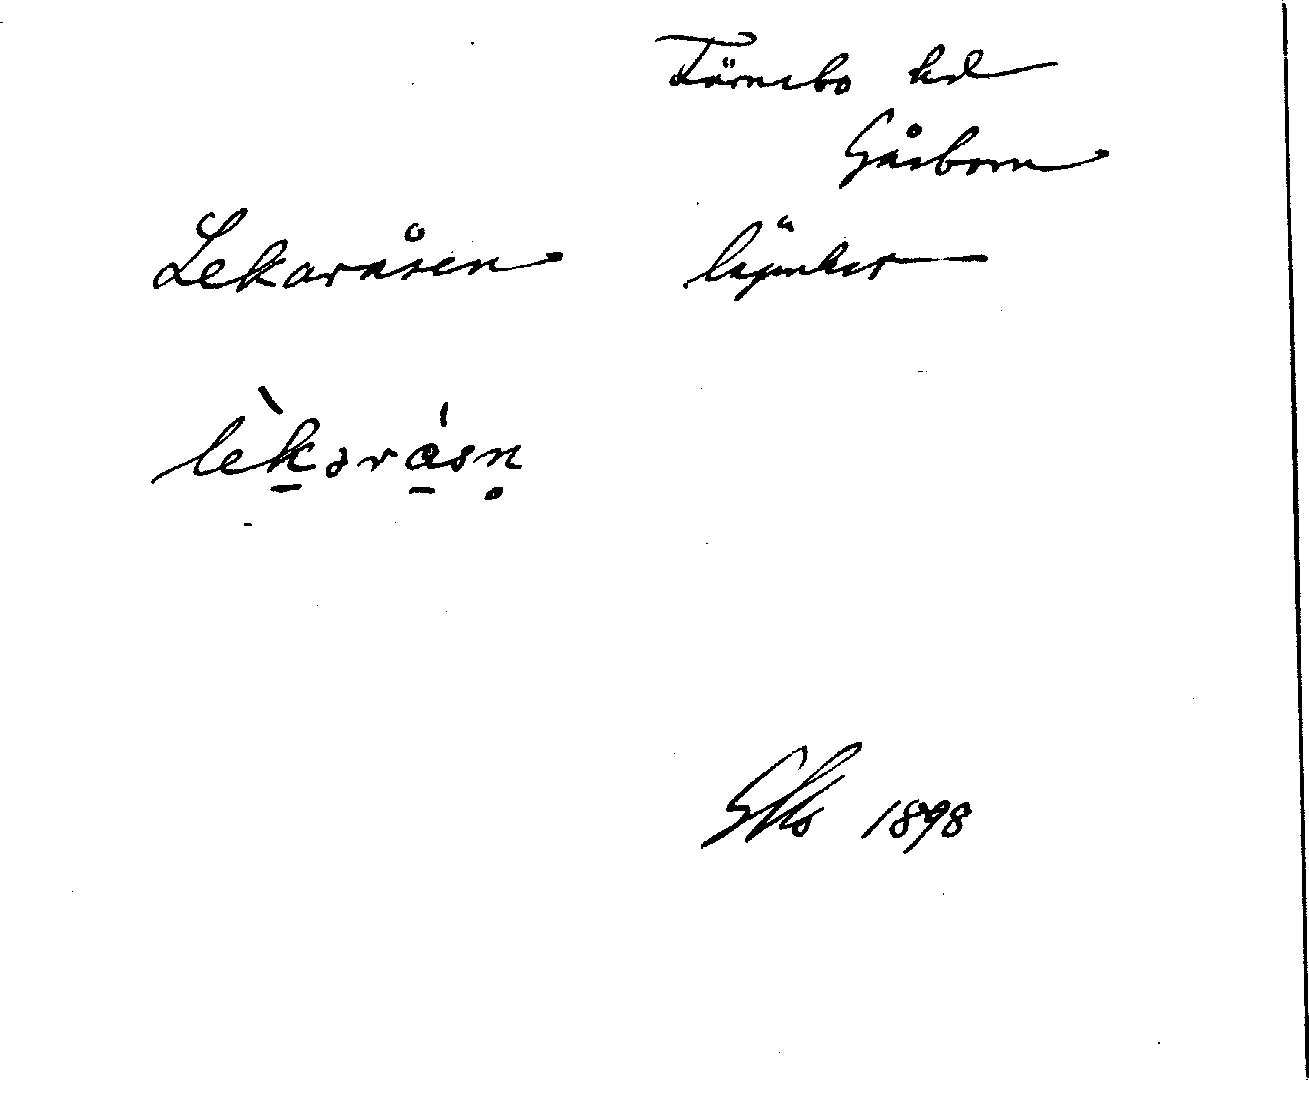 Färnebo hd
Gåsborn
Lekaråsen lägenhet
lèkaråsn
1898